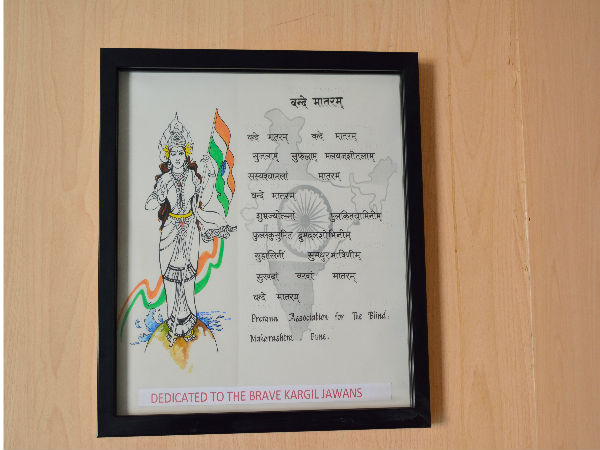 वन्दे मातरम्
वन्दे मातरम् वन्दे मातरम्
सुजलाम् सुफलाम् मलयजशीतलाम्
सस्यश्यामलां मातरम्
वन्दे मातरम्
शुभ्रज्योत्स्नां पुलकितयामिनीम्
फुल्लकुसुमित द्रुमदलशोभिनीम्
सुहासिनीं सुमधुरभाषिणीम्
सुखदां वरदां मातरम्
वन्दे मातरम्
Association for The Blind.
Maharashtra Pune.
DEDICATED TO THE BRAVE KARGIL JAWANS